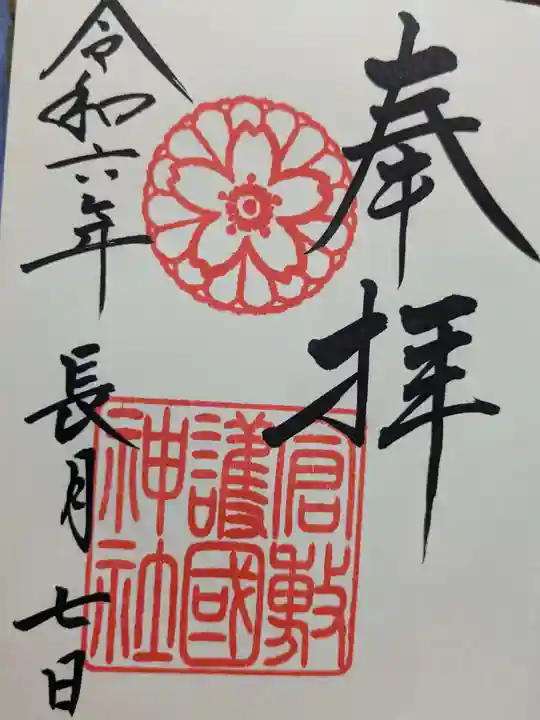 奉拝
倉敷
護國
神社
令和六年
長月七日